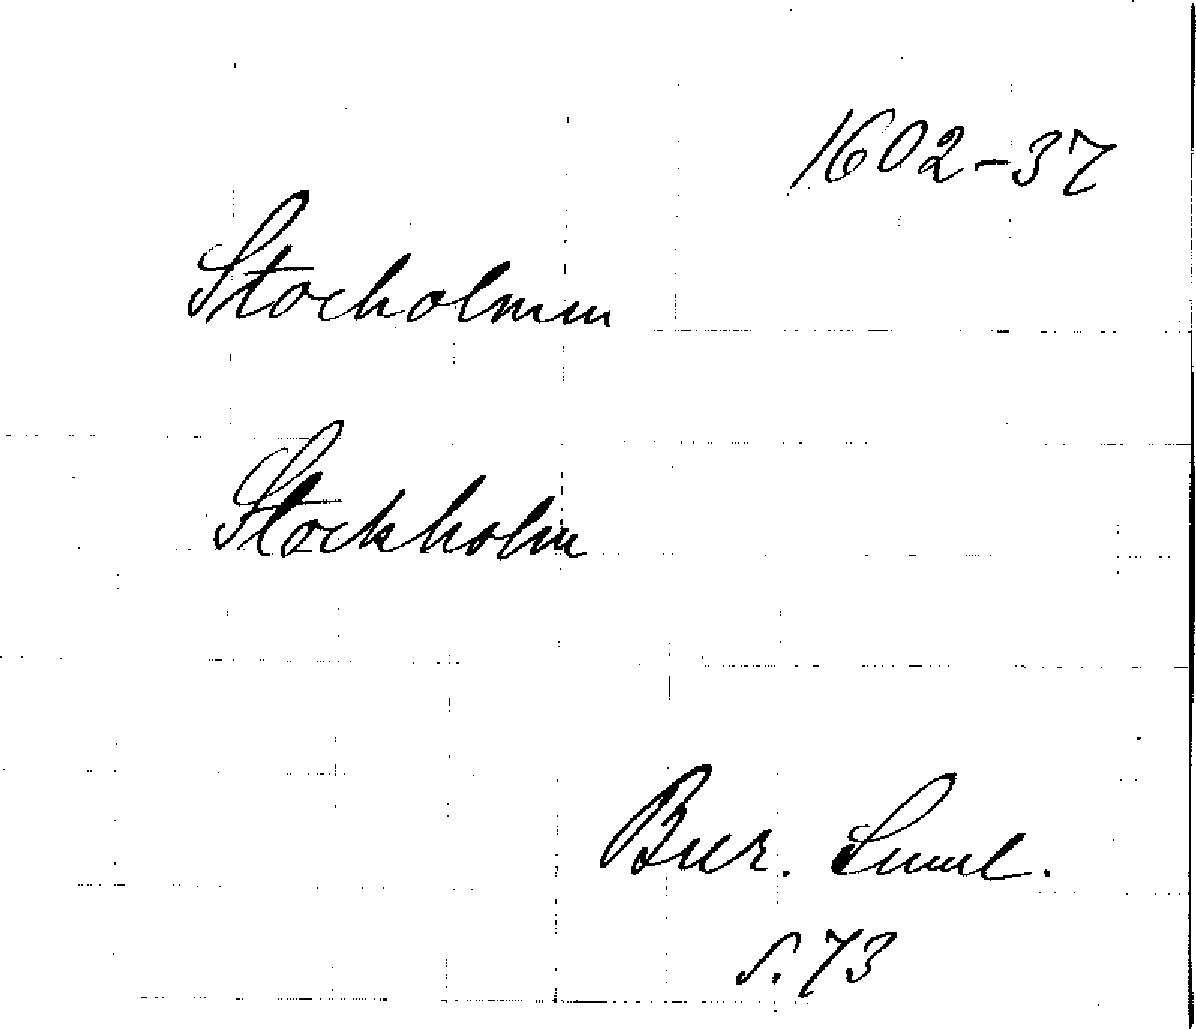 1602-37
Stocholmm
Stockholm
Saml.
s. 73